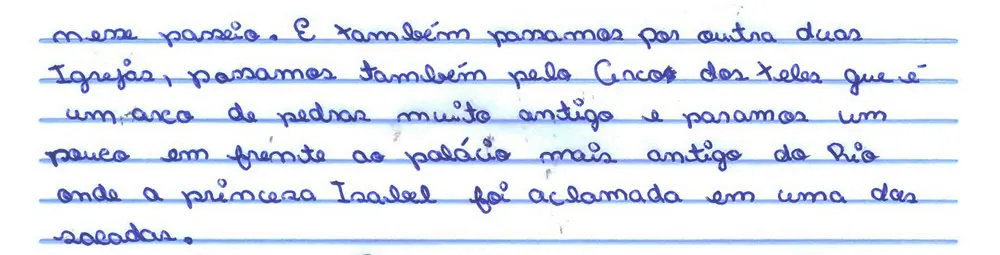 nesse passeio. E também passamos por outra duas
Igrejas, passamos também pelo Arco dos teles que é
um arco de pedras muito antigo e paramos um
pouco em frente ao palácio mais antigo do Rio
onde a princesa Isabel foi aclamada em uma das
sacadas.